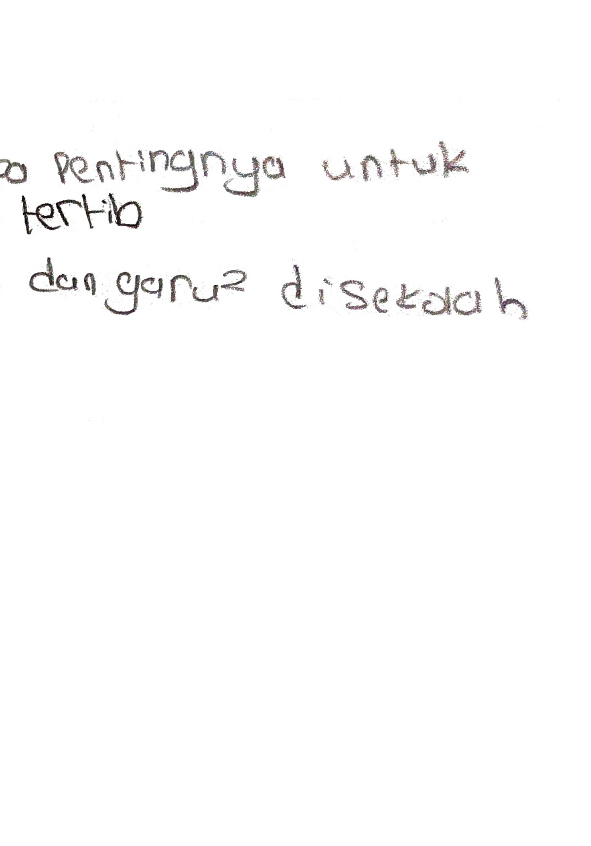 pentingnya untuk
tertib
dan garu2 disekolah